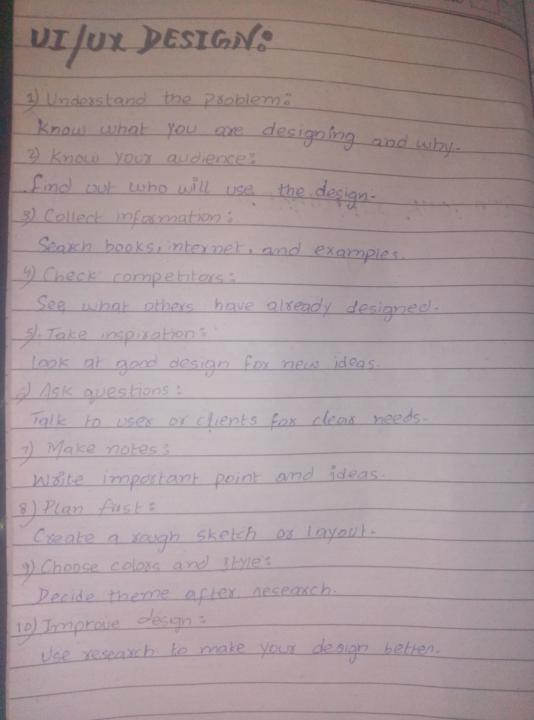 UI/UX DESIGN:
1) Understand the problem:
Know what you are designing and why.
2) Know your audience:
find out who will use the design.
3) Collect information:
Search books, internet, and examples.
4) Check competitors:
See what others have already designed.
5). Take inspiration:
Look at good design for new ideas.
6) Ask questions:
Talk to user or clients for clear needs.
7) Make notes:
Write important point and ideas.
8) Plan first:
Create a rough sketch or layout.
9) Choose colors and style:
Decide theme after research.
10) Improve design:
Use research to make your design better.